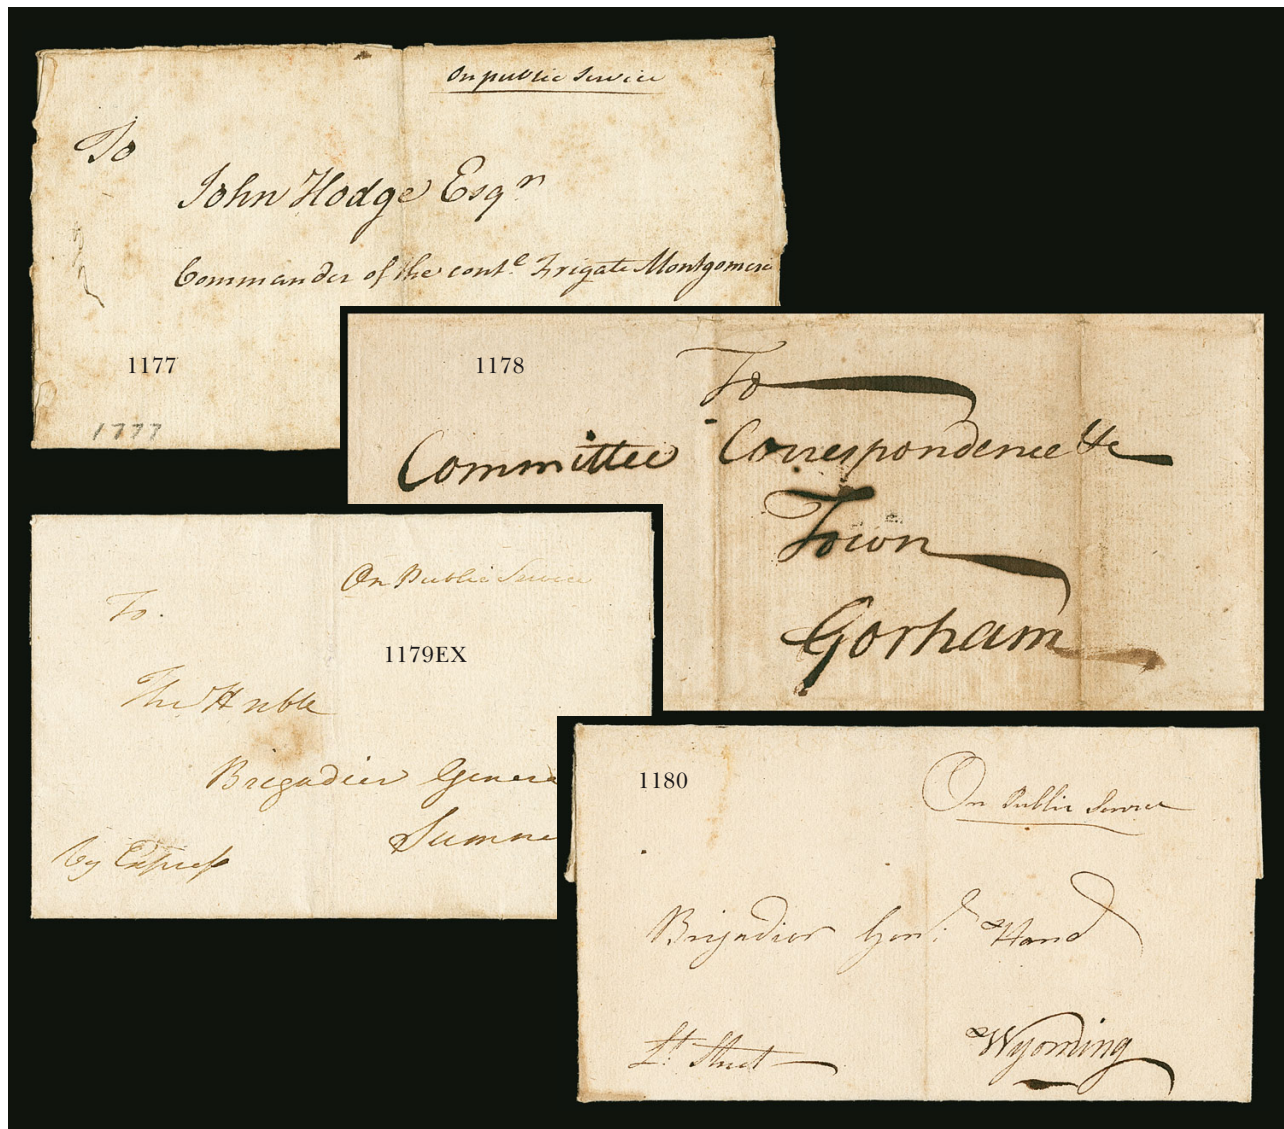 On public Service
To
John Hodge Esqr
Commander of the conte. Frigate Montgomer
1177
1777
1178
To
Committee Correspondence &c
Town
Gorham
On Public Service
To.
1179EX
The Hnble
Brigadier Genera
Sumne
By Express
1180
On Public Service
Brigadier Genl. Hand
Lt. Street
Wyoming